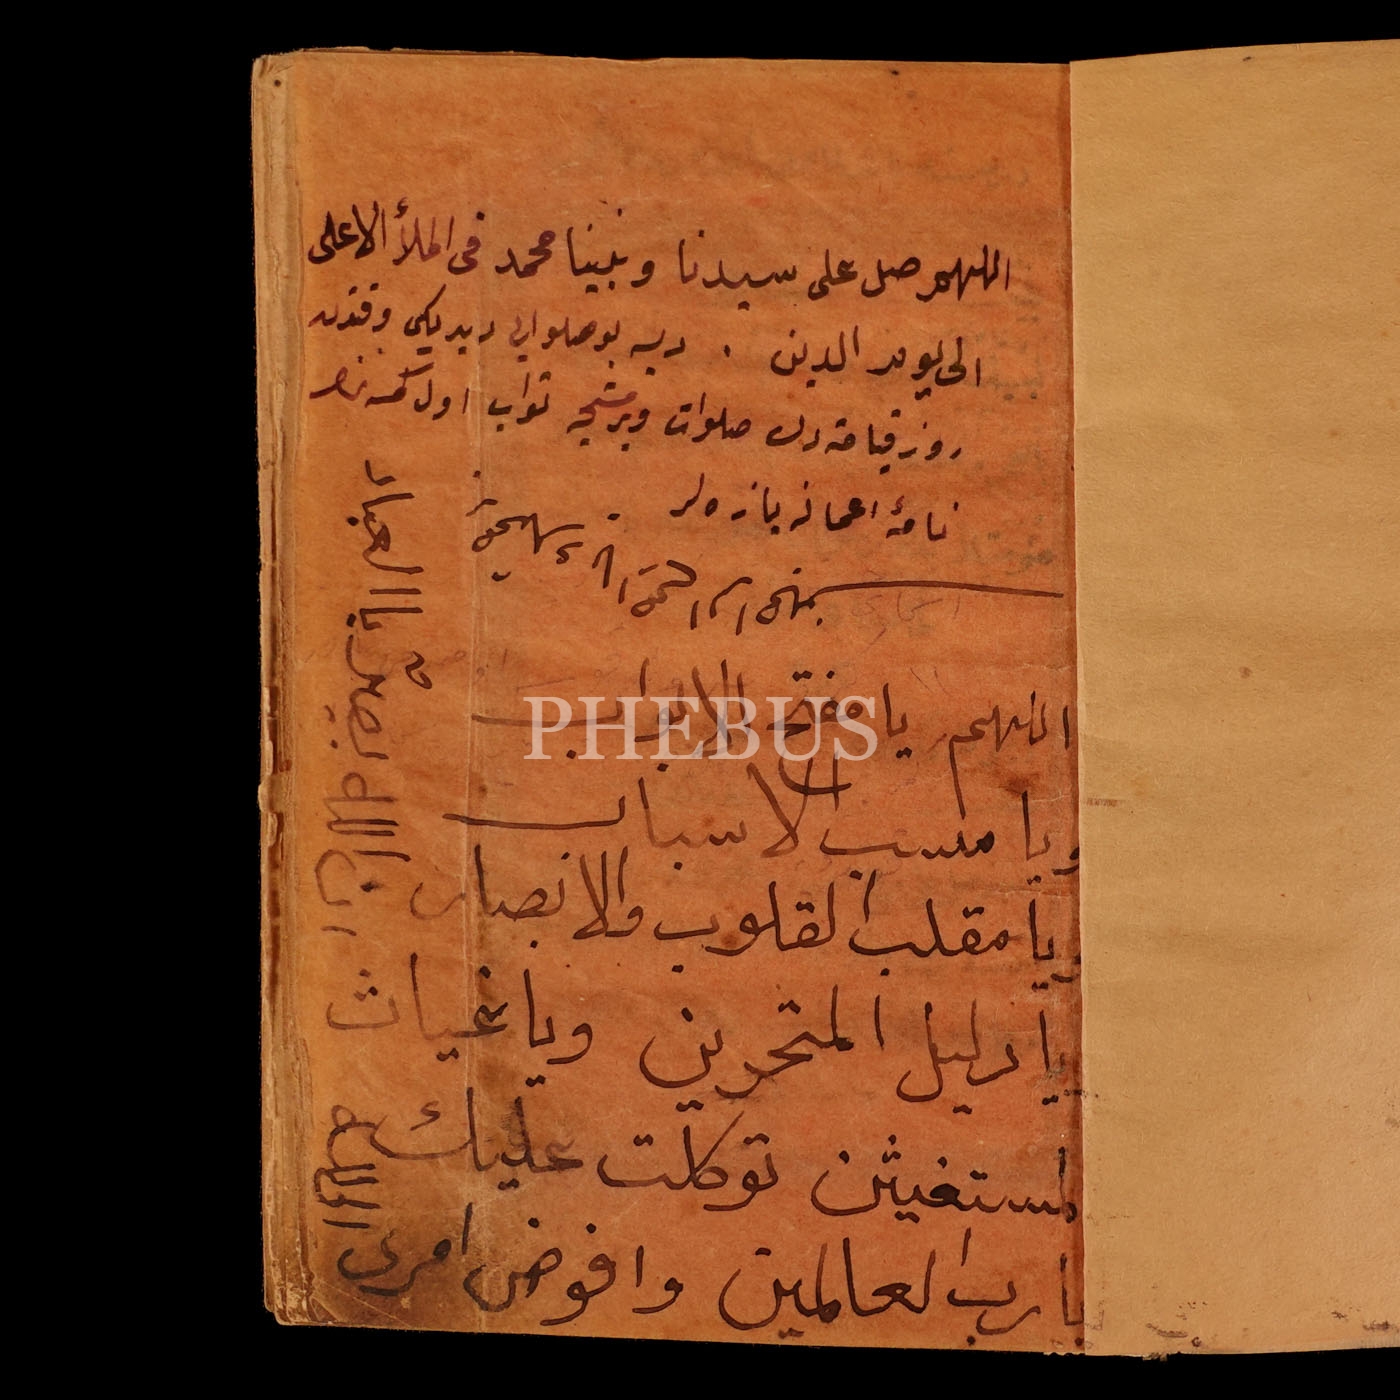 اللهم صل على سيدنا و نبينا محمد فى الملأ الاعلى
الى يوم الدين . ديه بو صلواتى ديديكى وقتدن
روز قيامتدن صلوات ويرمشجه ثواب اول كمسه نك
نامۀ اعمالنه يازيلر
بسم الله الرحمن الرحيم
اللهم يا مفتح الابواب
ويا مسبب الاسباب
ويا مقلب القلوب والابصار
ويا دليل المتحرين ويا غياث
المستغيثن توكلت عليك
يا رب العالمين وافوض امرى
الى الله ان الله بصير بالعباد
PHEBUS